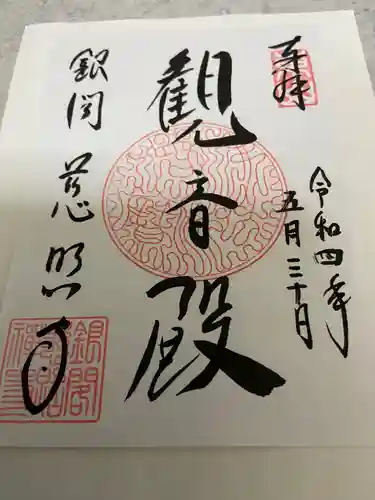 奉拝
令和四年
五月三十日
観音殿
銀閣慈照寺